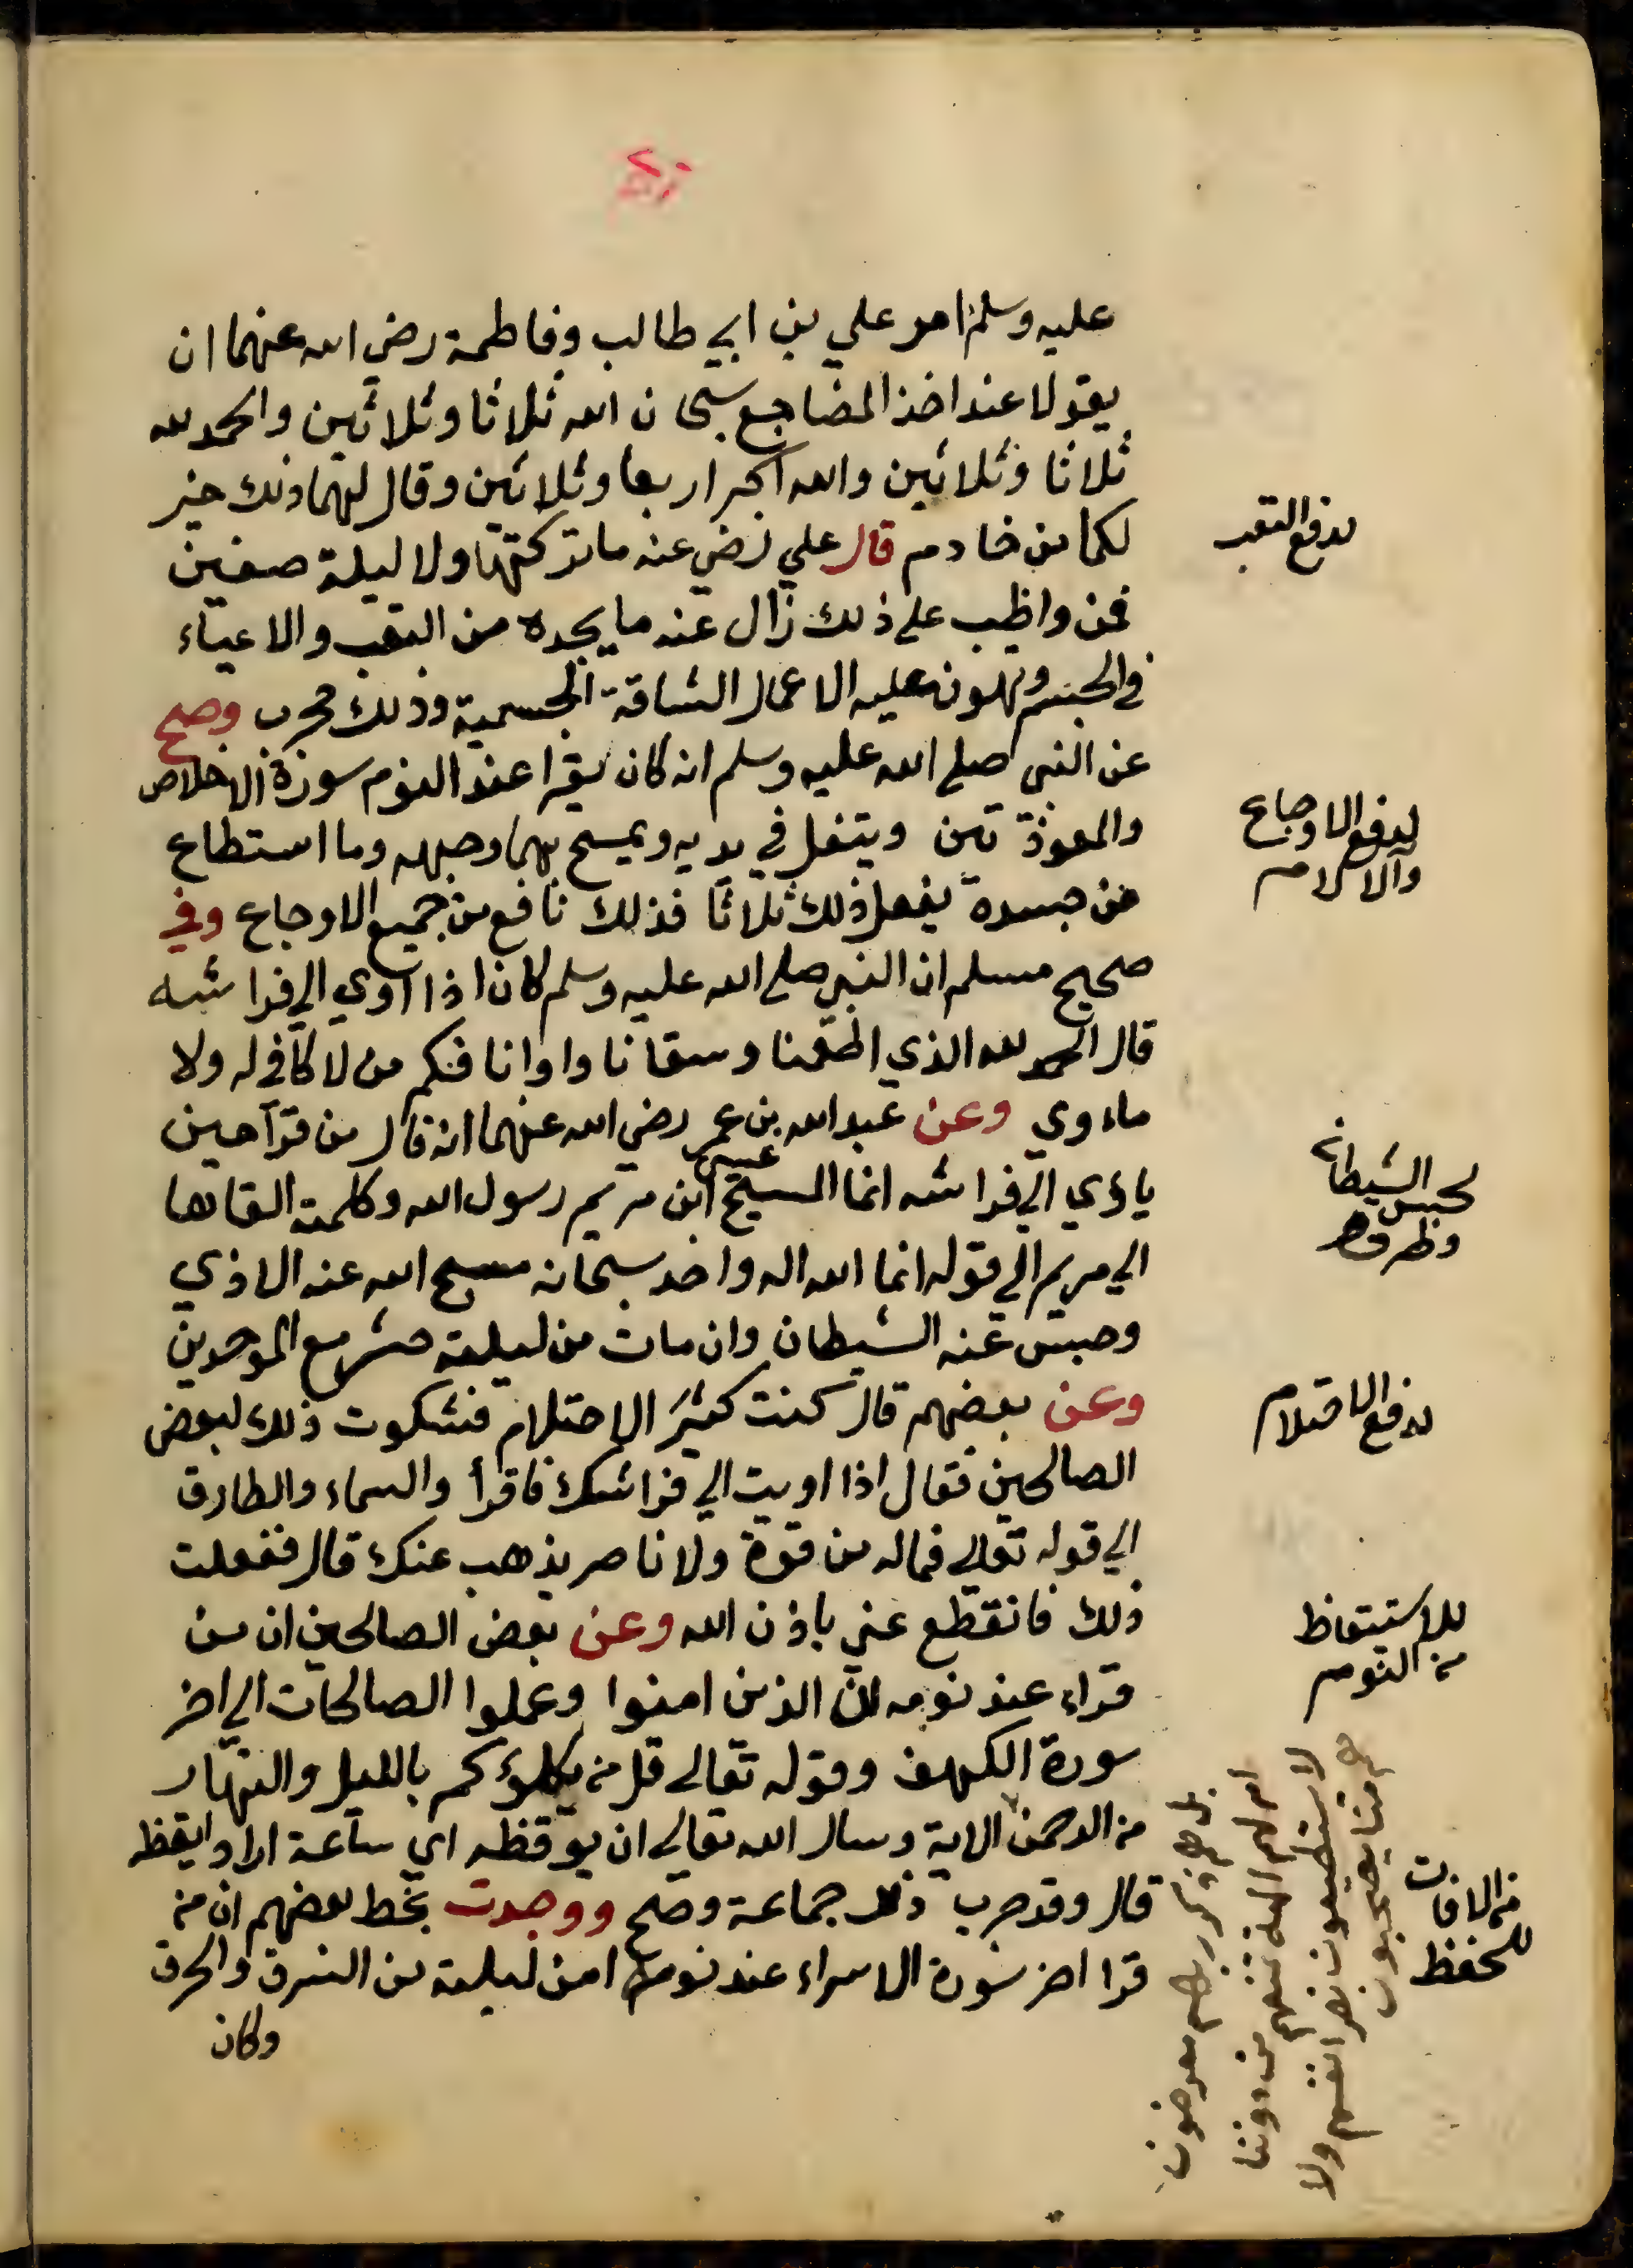 عليه وسلم امر علي بن ابي طالب وفاطمة رضي الله عنهما ان
يقولا عند اخذ المضاجع سبحان الله ثلاثا وثلاثين والحمد لله
ثلاثا وثلاثين والله اكبر اربعا وثلاثين وقال لهما ذلك خير
لكما من خادم قال علي رضي عنه ما تركتها ولا ليلة صفين
فمن واظب على ذلك زال عنه ما يجده من التعب والاعياء
في الجسم وتهون عليه الاعمال الشاقة الجسمية وذلك مجرب وصح
عن النبي صلى الله عليه وسلم انه كان يقرا عند النوم سورة الاخلاص
والمعوذتين ويتفل في يديه ويمسح بهما وجهه وما استطاع
من جسده يفعل ذلك ثلاثا فذلك نافع من جميع الاوجاع وفي
صحيح مسلم ان النبي صلى الله عليه وسلم كان اذا آوي الي فراشه
قال الحمد لله الذي اطعمنا وسقانا واوانا فكم من لا كافي له ولا
ماءوي وعن عبد الله بن عمر رضي الله عنهما انه قال من قرآ حين
ياؤي الي فراشه انما المسيح عيسى ابن مريم رسول الله وكلمته القاها
الي مريم الي قوله انما الله اله واحد سبحانه مسح الله عنه الاذي
وحبس عنه الشيطان وان مات من ليلته حشر مع الموحدين
وعن بعضهم قال كنت كثير الاحتلام فشكوت ذلك لبعض
الصالحين فقال اذا اويت الي فراشك فاقرأ والسماء والطارق
الي قوله تعالي فماله من قوة ولا ناصر يذهب عنك قال ففعلت
ذلك فانقطع عني باذن الله وعن بعض الصالحين ان من
قراء عند نومه ان الذين امنوا وعملوا الصالحات الي اخر
سورة الكهف وقوله تعالى قل من يكلؤكم بالليل والنهار
من الرحمن الاية وسال الله تعالى ان يوقظه اي ساعة اراد ايقظه
قال وقد جرب ذلك جماعة وصح ووجدت بخط بعضهم ان من
قرا اخر سورة الاسراء عند نومه امن ليلته من السرق والحرق
وكان
لدفع التعب
لدفع الاوجاع
والالام
لحبس الشيطان
وطرده
لدفع الاحتلام
للاستيقاظ
من النوم
للحفظ
من الافات
بل هم عن ذكر ربهم معرضون
ام لهم الهة تمنعهم من دوننا
لا يستطيعون نصر انفسهم ولا
هم منا يصحبون